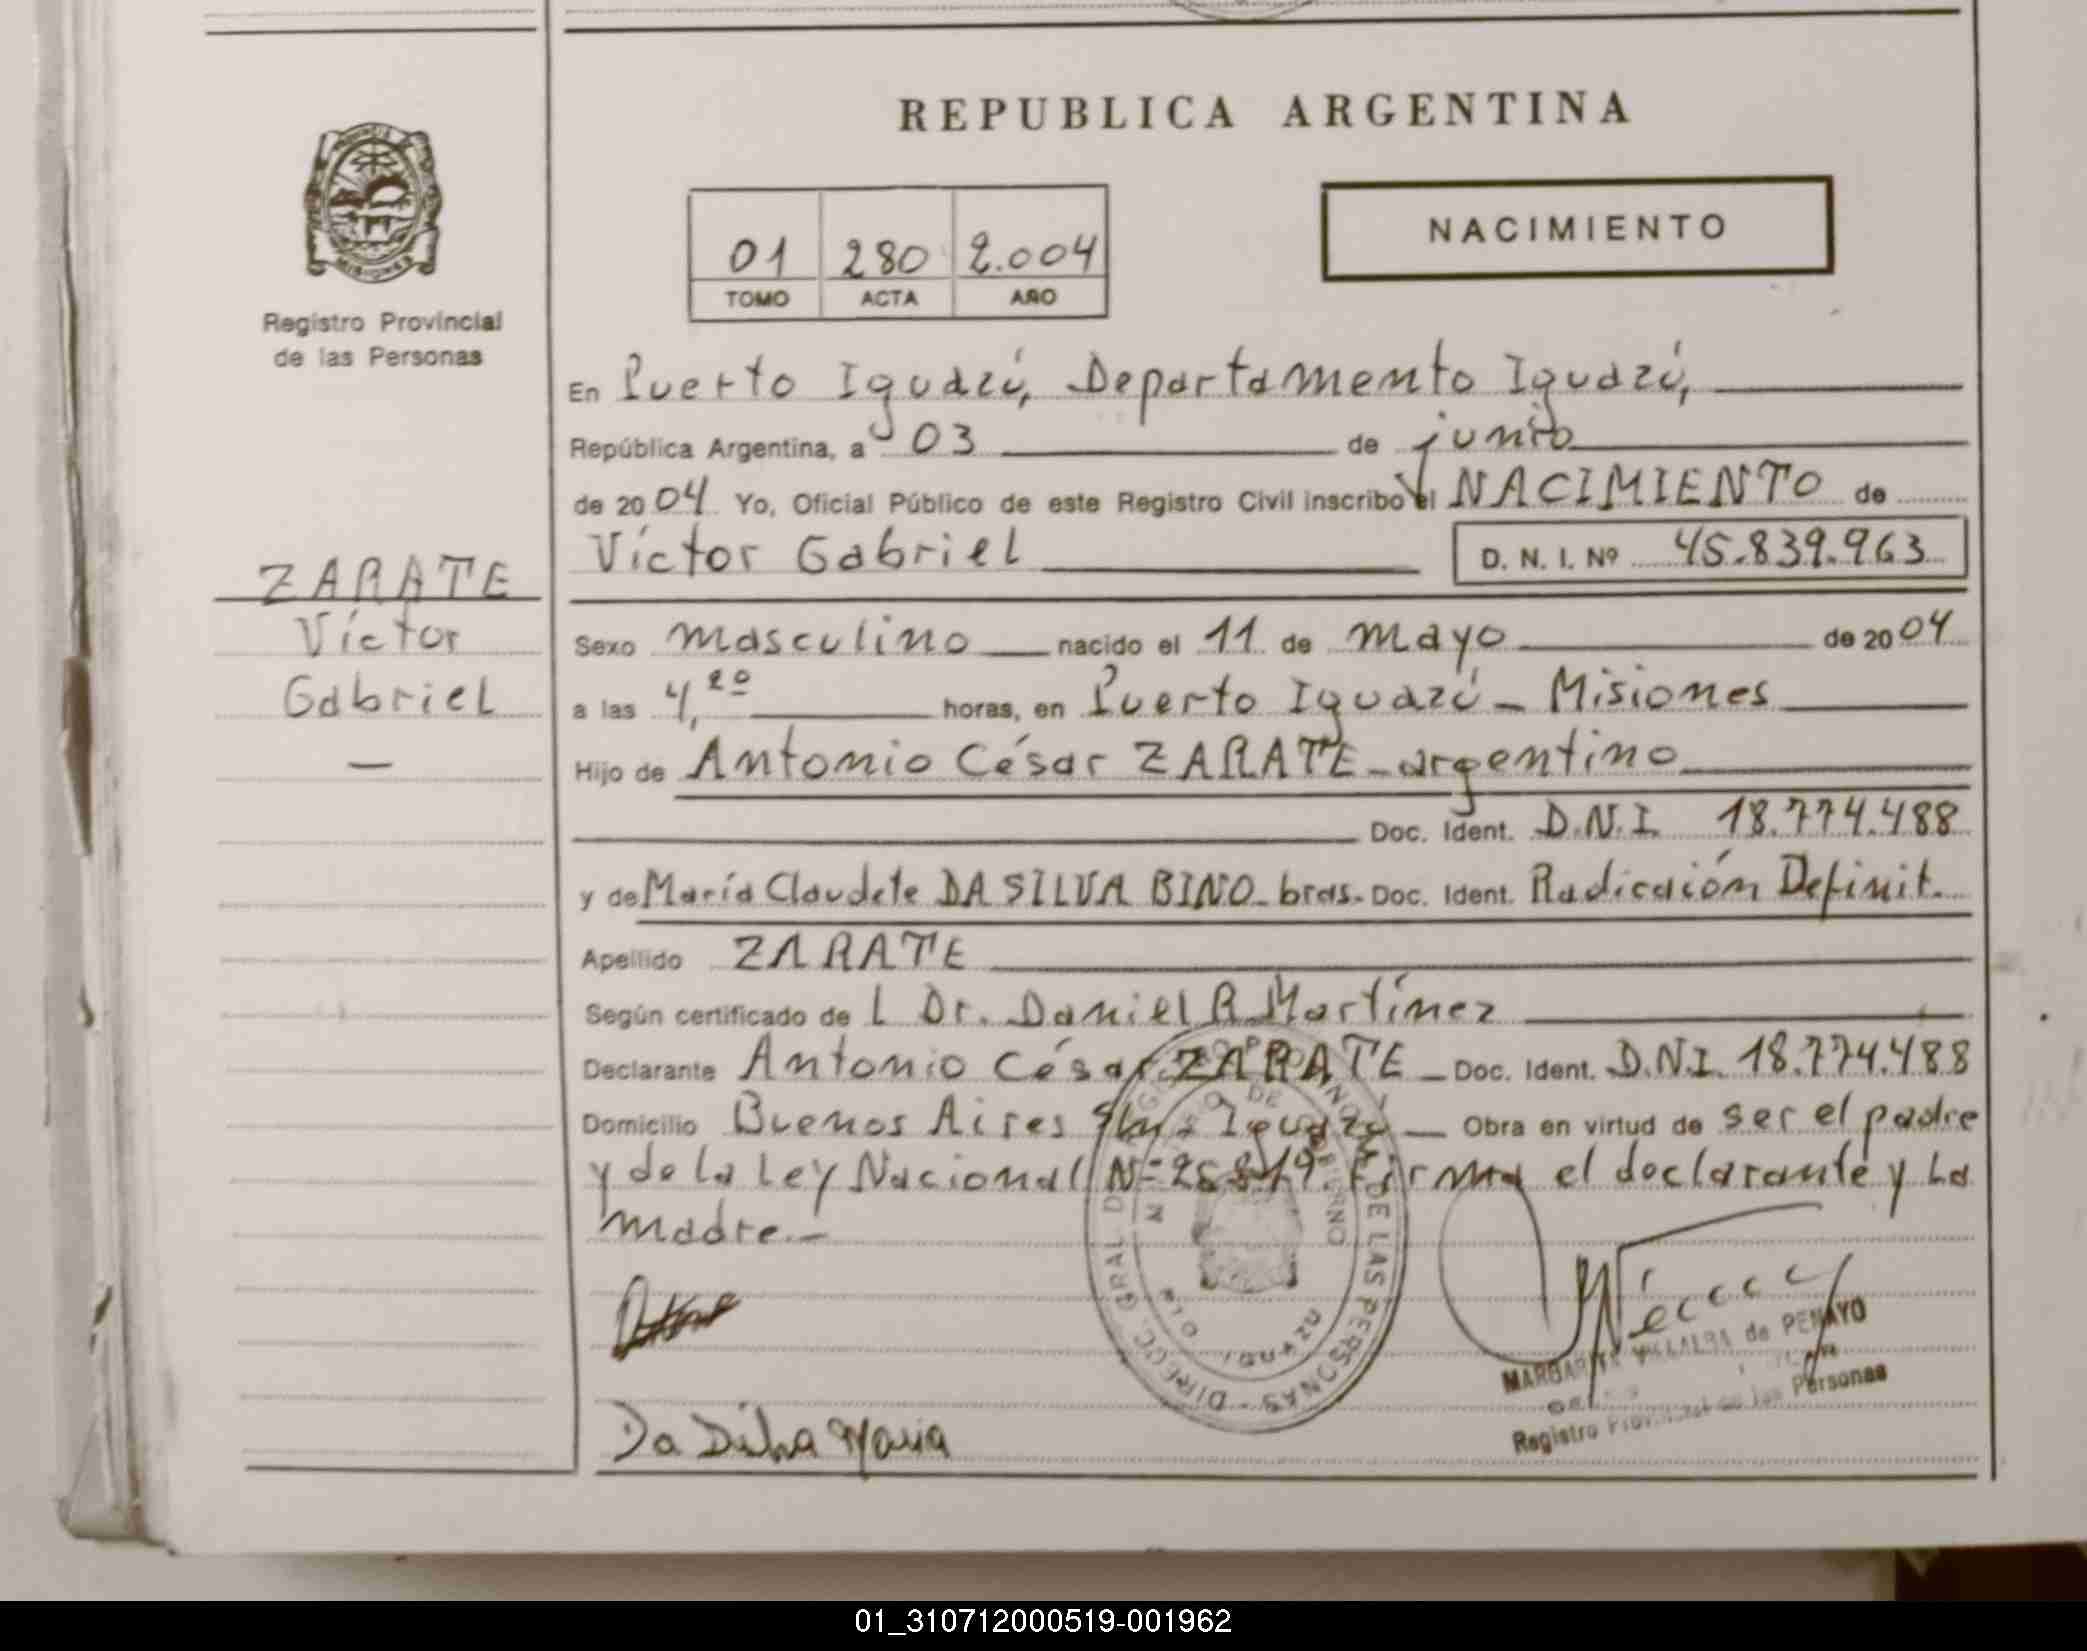 REPUBLICA ARGENTINA
NACIMIENTO
01 280 2.004
TOMO ACTA AÑO
MISIONES
Registro Provincial
de las Personas
En Puerto Iguazú, Departamento Iguazú,
República Argentina, a 03 de junio
de 2004 Yo, Oficial Público de este Registro Civil inscribo el NACIMIENTO de
Víctor Gabriel D. N. I. Nº 45.839.963
ZARATE
Víctor
Gabriel
—
Sexo masculino nacido el 11 de mayo de 2004
a las 4,20 horas, en Puerto Iguazú - Misiones
Hijo de Antonio César ZARATE - argentino
Doc. Ident. D.N.I. 18.774.488
y de María Claudete DA SILVA BINO - bras. Doc. Ident. Radicación Definit.
Apellido ZARATE
Según certificado de L Dr. Daniel R Martínez
Declarante Antonio César ZARATE - Doc. Ident. D.N.I. 18.774.488
Domicilio Buenos Aires Iguazú - Obra en virtud de ser el padre
y de la Ley Nacional Nº Firma el declarante y la
madre.-
DIRECC. GRAL DE LAS PERSONAS
IGUAZU
Da Silva Maria
MARGARITA VILLALBA de PENAYO
Registro Provincial de las Personas
01_310712000519-001962